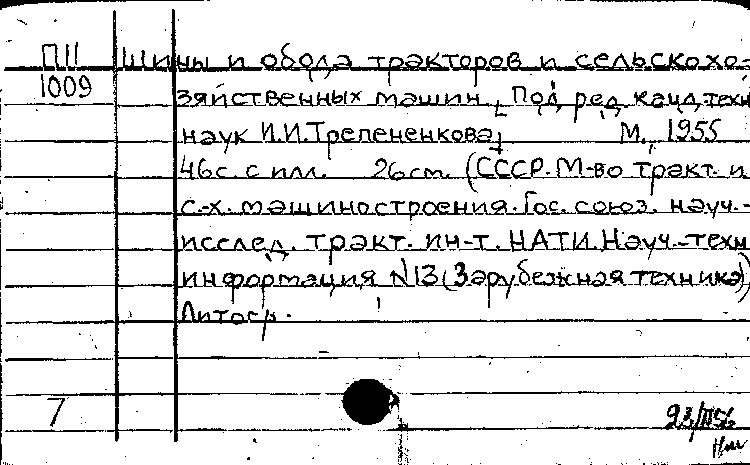 ПII Шины и обода тракторов и сельскохо-
1009 зяйственных машин. Под ред. канд. техн.
наук И.И.Трепененкова М., 1955
46с. с илл. 26см. (СССР. М-во тракт. и
с-х. машиностроения. Гос. союз. науч.-
исслед. тракт. ин-т. НАТИ. Науч.-техн
информация №13 (Зарубежная техника)
Литогр.
7
23/III56